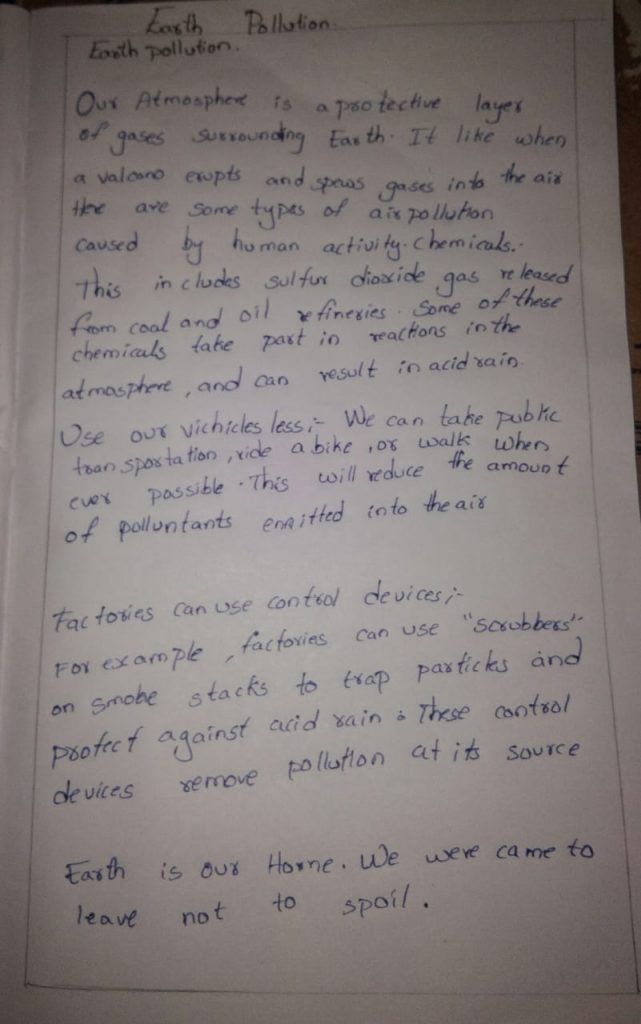 Earth Pollution.
Earth pollution.
Our Atmosphere is a protective layer
of gases surrounding Earth. It like when
a valcano erupts and spews gases into the air
Here are some types of air pollution
caused by human activity. chemicals.-
This includes sulfur dioxide gas released
from coal and oil refineries. Some of these
chemicals take part in reactions in the
atmosphere, and can result in acid rain.
Use our vichicles less;- We can take public
transportation, ride a bike, or walk when
ever possible. This will reduce the amount
of polluntants emitted into the air
Factories can use control devices;-
For example, factories can use "scrubbers"
on smobe stacks to trap particles and
protect against acid rain. These control
devices remove pollution at its source
Earth is our Home. We were came to
leave not to spoil.